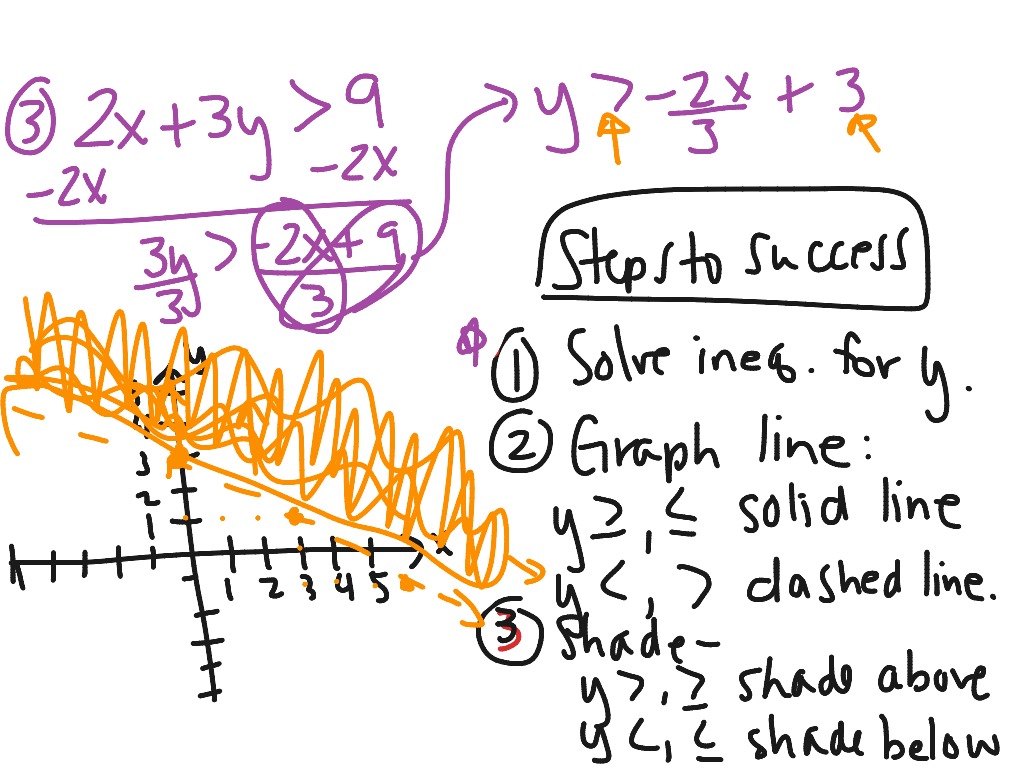 ③ 2x + 3y > 9
-2x -2x
3y/3 > -2x + 9/3
y > -2x/3 + 3
Steps to success
① Solve ineq. for y.
② Graph line:
y ≥, ≤ solid line
y <, > dashed line.
③ Shade -
y >, ≥ shade above
y <, ≤ shade below
y
3
2
1
x
1 2 3 4 5